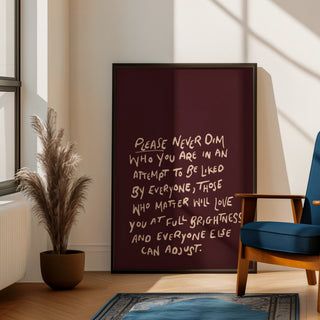 PLEASE NEVER DIM
WHO YOU ARE IN AN
ATTEMPT TO BE LIKED
BY EVERYONE, THOSE
WHO MATTER WILL LOVE
YOU AT FULL BRIGHTNESS
AND EVERYONE ELSE
CAN ADJUST.